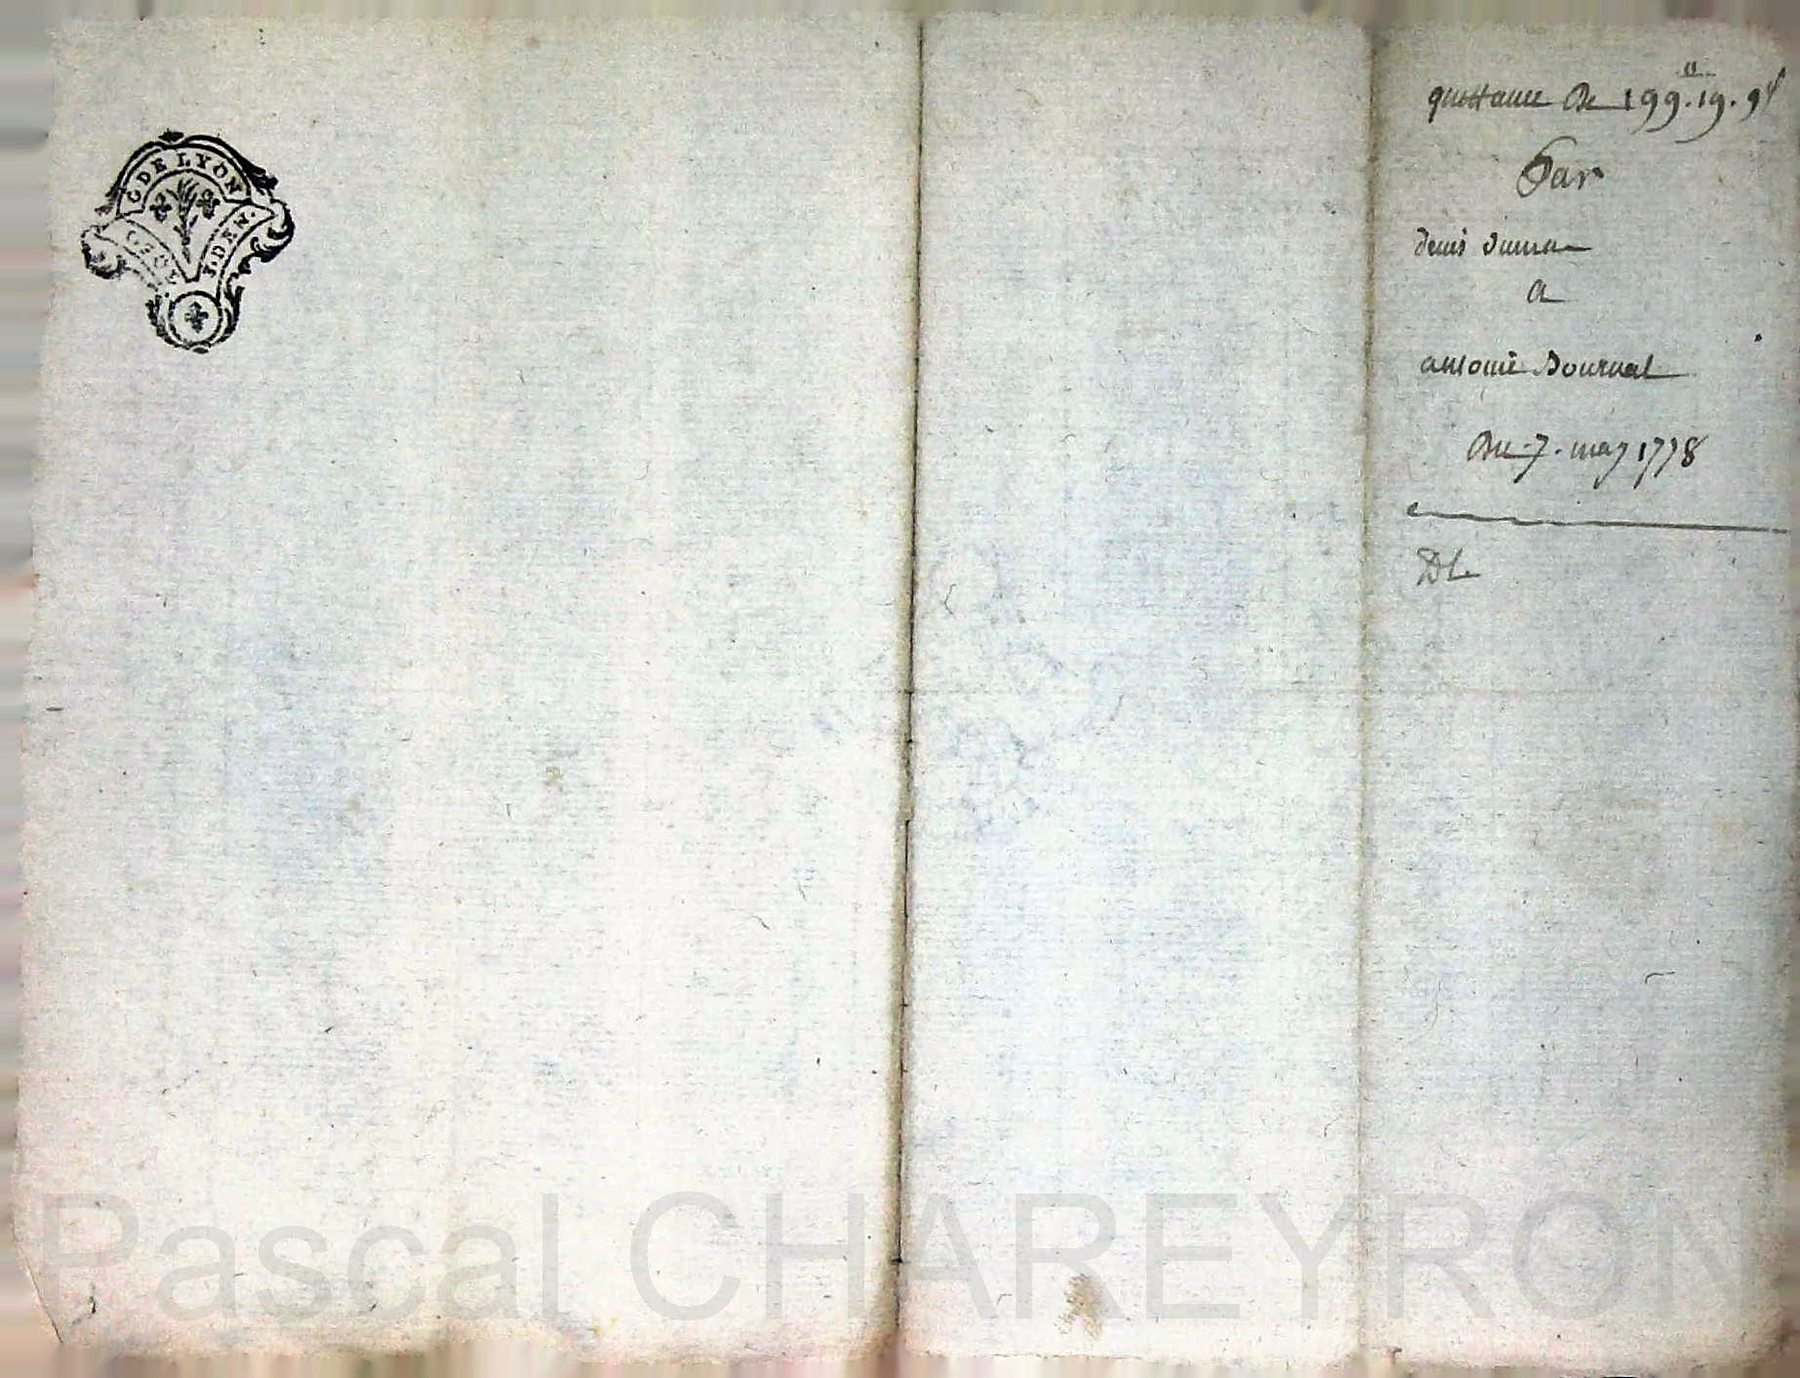 G. DE LYON
I. DEN.
quittance De 199.ᵗᵗ 19. 9ᵈ
Par
denis
a
antoine Dournal
Du 7. may 1778
DL
Pascal CHAREYRON